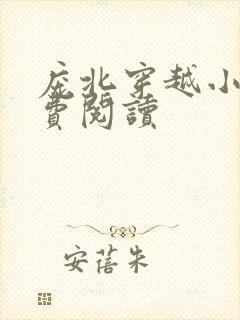 庇北穿越小
費閱讀
安蓓朱